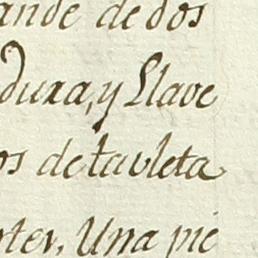 ande de dos
dura, y Llave
os de tavleta
ter, Una pie